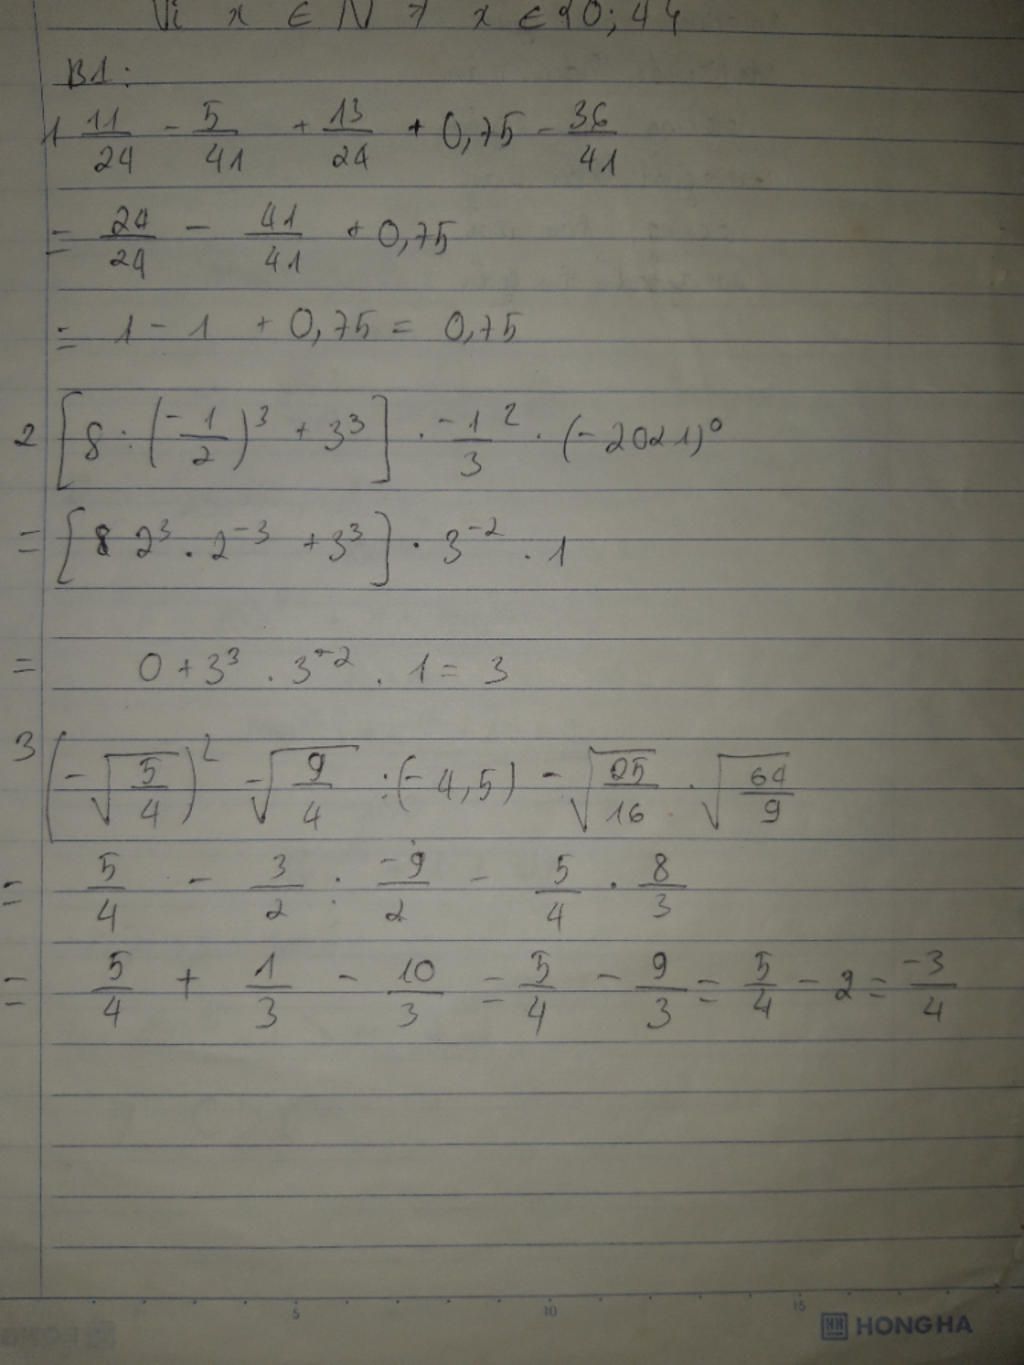 Vì x ∈ N ⇒ x ∈ {0; 4
B1:
1 11/24 - 5/41 + 13/24 + 0,75 - 36/41
= 24/24 - 41/41 + 0,75
= 1 - 1 + 0,75 = 0,75
2 [8 : (-1/2)³ + 3³] . -1/3 ² . (-2021)⁰
= [8 2³ . 2⁻³ + 3³] . 3⁻² . 1
= 0 + 3³ . 3⁻² . 1 = 3
3 (-√(5/4))² - √(9/4) : (-4,5) - √(25/16) . √(64/9)
= 5/4 - 3/2 : -9/2 - 5/4 . 8/3
= 5/4 + 1/3 - 10/3 = 5/4 - 9/3 = 5/4 - 2 = -3/4
5 10 15
HONG HA